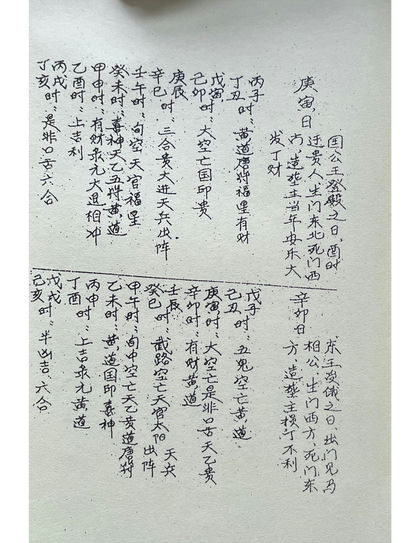 庚寅日
国公王登殿之日,酉时
迁贵人生门东北死门西
内造葬主当年安乐大
发丁财
丙子时:黄道唐符福星有财
丁丑
戊寅时:大空亡国印贵
己卯
庚辰
辛巳时:三合贵大进天兵出阵
壬午时:旬空天官福星
癸未时:喜神天乙唐符黄道
甲申时:有财杀元大退相冲
乙酉时:上吉利
丙戌时:是非口舌六合
丁亥
辛卯日
东王没俄之日,出门见西
相公,生门西方,死门东
方,造葬主损丁不利
戊子时:五鬼空亡黄道
己丑
庚寅时:大空亡是非口舌天乙贵
辛卯时:有财黄道
壬辰
癸巳时:武路空亡天官太阳天兵出阵
甲午时:旬中空亡天乙黄道唐符
乙未时:黄道国印喜神
丙申时:上吉杀元黄道
丁酉
戊戌时:半凶吉六合
己亥